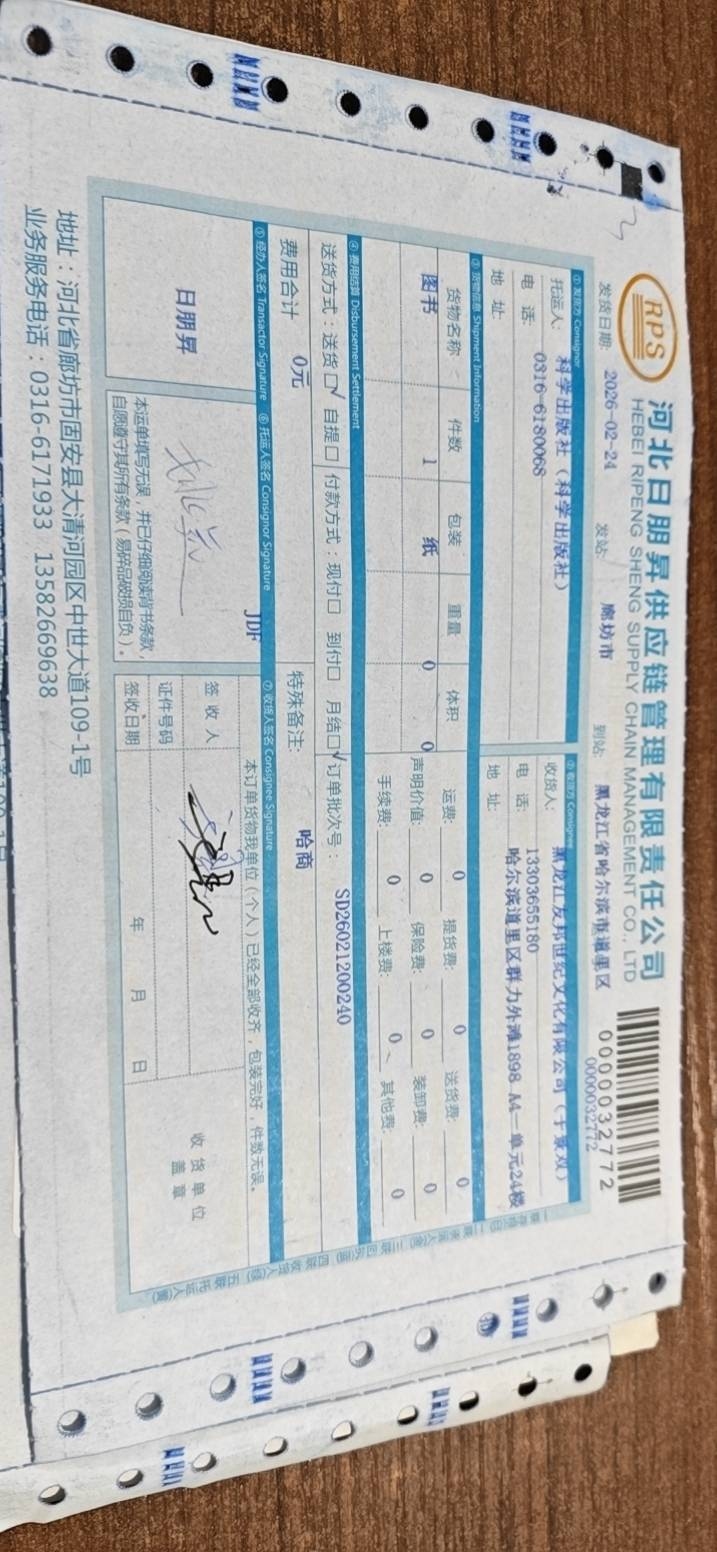 RPS
河北日朋昇供应链管理有限责任公司
HEBEI RIPENG SHENG SUPPLY CHAIN MANAGEMENT CO., LTD
0000032772
0000032772
发货日期: 2026-02-24 发站: 廊坊市 到站: 黑龙江省哈尔滨市道里区
① 发货方 Consignor
托运人: 科学出版社（科学出版社）
电 话: 0316-6180068
地 址:
② 收货方 Consignee
收货人: 黑龙江友邦世纪文化有限公司（于景双）
电 话: 13303655180
地 址: 哈尔滨道里区群力外滩1898 A4一单元24楼
③ 货物信息 Shipment Information
货物名称 件数 包装 重量 体积
图书 1 纸 0 0
运费: 0 提货费: 0 送货费: 0
声明价值: 0 保险费: 0 装卸费: 0
手续费: 0 上楼费: 0 其他费: 0
④ 费用结算 Disbursement Settlement
送货方式：送货☑ 自提□ 付款方式：现付□ 到付□ 月结☑ 订单批次号： SD26021200240
费用合计 0元 特殊备注: 哈商
JDF
⑤ 经办人签名 Transactor Signature ⑥ 托运人签名 Consignor Signature ⑦ 收货人签名 Consignee Signature
日朋昇
本运单填写无误，并已仔细阅读背书条款，
自愿遵守其所有条款（易碎品破损自负）。
本订单货物我单位（个人）已经全部收齐，包装完好，件数无误。
签 收 人
证件号码
签收日期 年 月 日
收 货 单 位
盖 章
地址：河北省廊坊市固安县大清河园区中世大道109-1号
业务服务电话：0316-6171933 13582669638